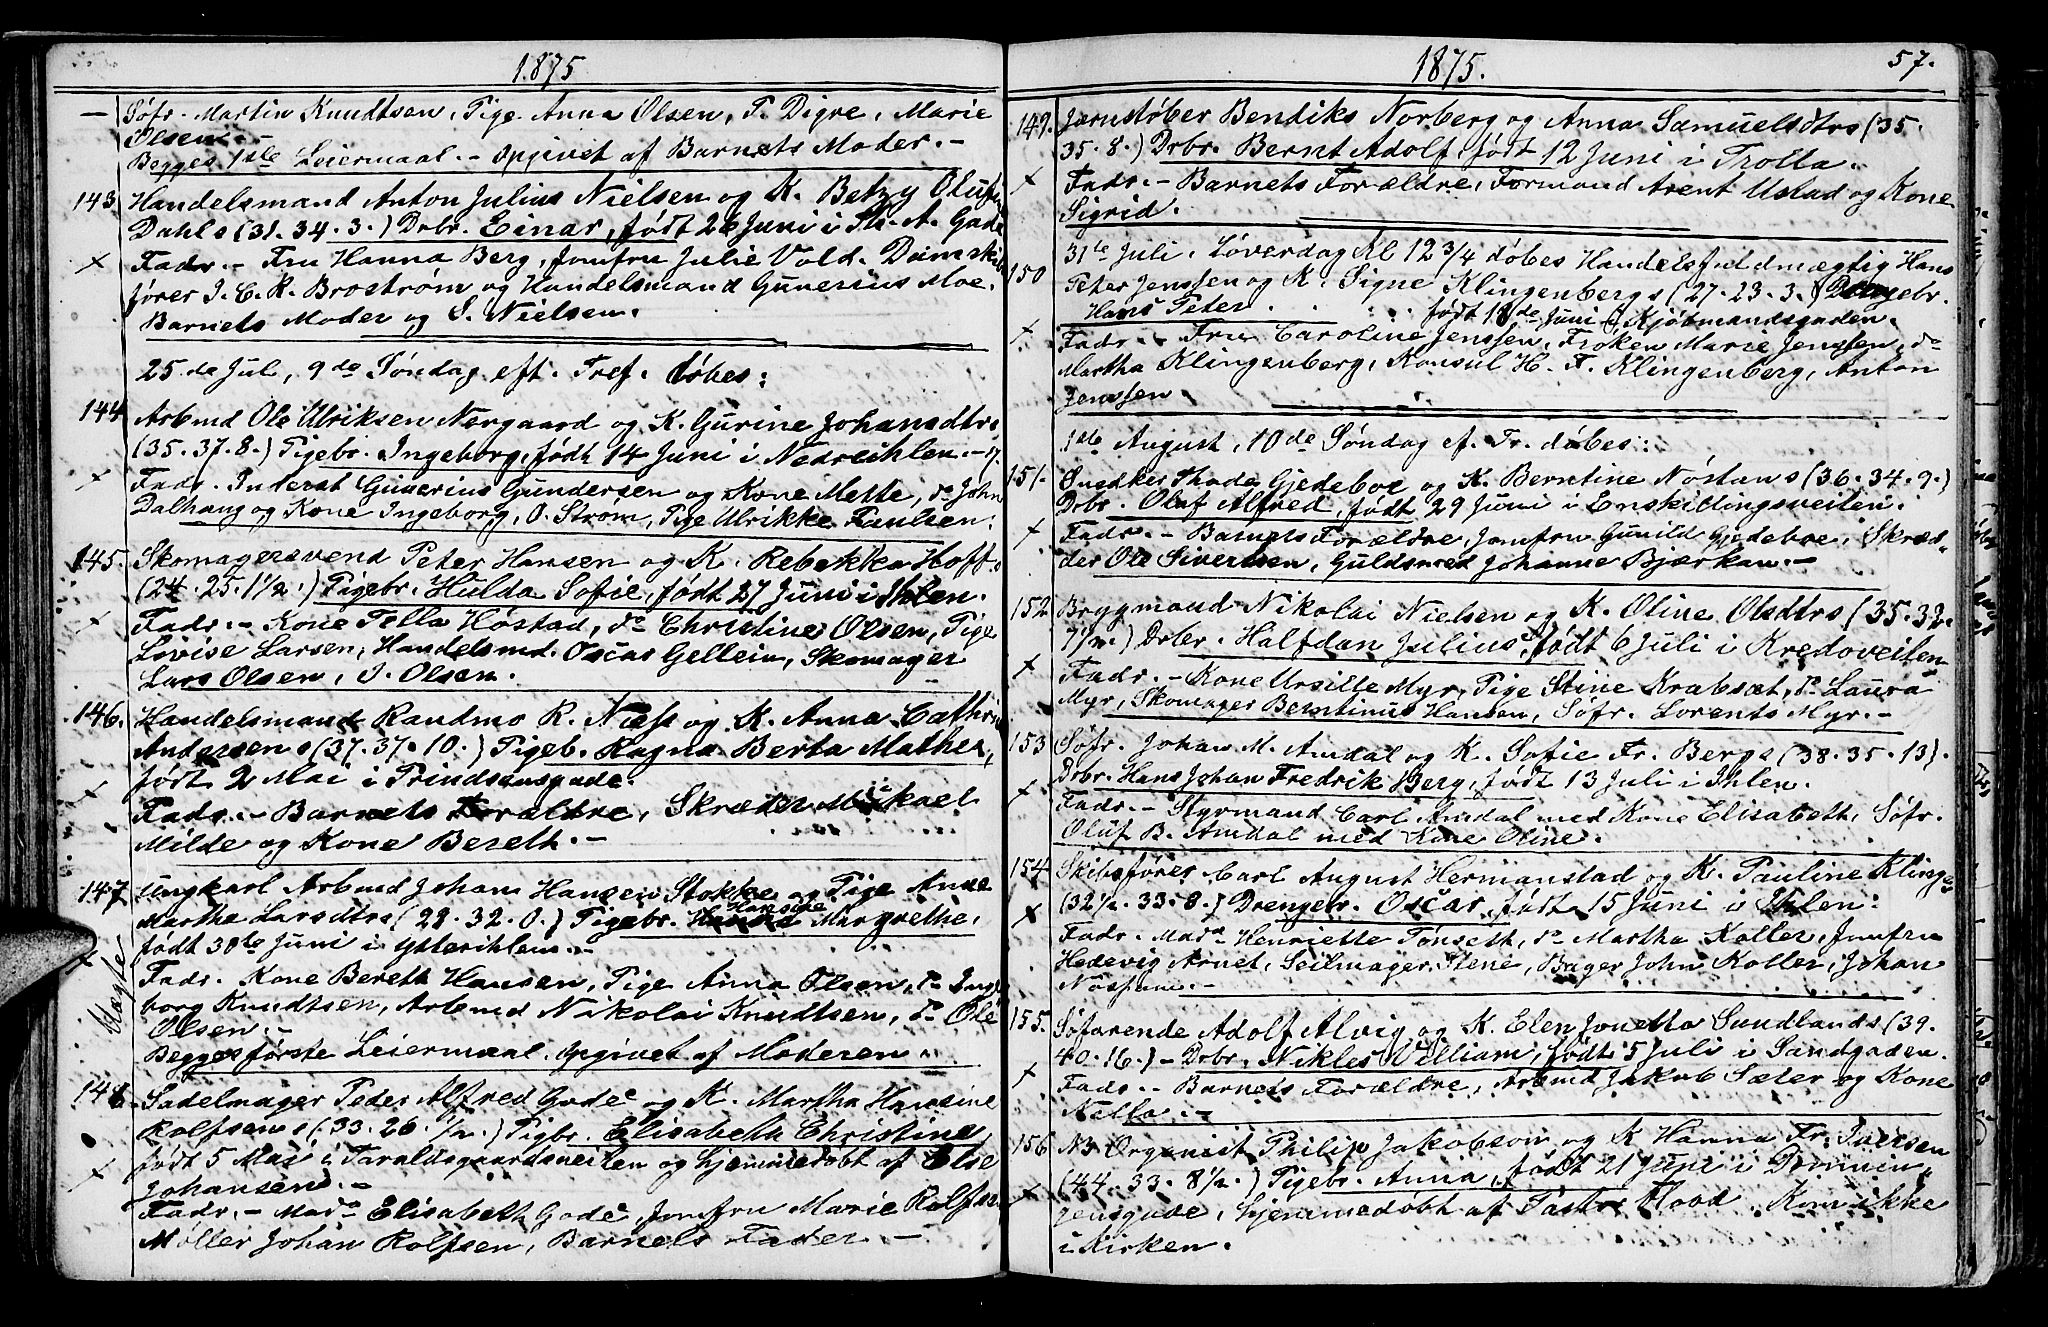 1875
— Søfr. Martin Knudtsen, Pige Anna Olsen, P. Digre, Marie
Olsen. —
Begges 1ste Leiermaal. — Opgivet af Barnets Moder. —
143. Handelsmand Anton Julius Nielsen og K. Betzy Oluf
Dahls (31. 34. 3.) Drbr. Einar, født 26 Juni i
Fadr. — Fru Hanna Berg, Jomfru Julie Vold. Dampskibs
fører J. C. R. Brostrøm og Handelsmand Gunerius Moe.
Barnets Moder og S. Nielsen.
25de Jul, 9de Søndag eft. Tref. døbes:
144 Arbmd Ole Ulriksen Nergaard og K. Gurine Johansdtrs
(35. 37. 8.) Pigebr. Ingeborg, født 14 Juni i Nedreihlen. —
Fadr. Inderst Gunerius Gundersen og Kone Mette, do John
Dalhaug og Kone Ingeborg, O. Strøm, Pige Ulrikke Paulsen.
145. Skomagersvend Peter Hansen og K. Rebekka Hoffs
(24. 25. 1½.) Pigebr. Hulda Sofie, født 27 Juni i Ihlen.
Fadr. — Kone Pella Høstad, do Christine Olsen, Pige
Lovise Larsen, Handelsmd. Oscar Gellein, Skomager
Lars Olsen, J. Olsen.
146. Handelsmand Randmo R. Næss og K. Anna Cathrin
Andersens (37. 37. 10.) Pigeb. Ragna Berta Mathea,
født 2 Mai i Prindsensgade.
Fadr. — Barnets Forældre, Skræder Mikael
Milde og Kone Bereth. —
147 Ungkarl Arbmd Johan Hansen Stokke og Pige Ane
Hansine
Marthe Larsdtrs (29. 32. 0.) Pigebr. Margrethe,
født 30te Juni i Ytterihlen. —
Fadr. Kone Bereth Hansen, Pige Anna Olsen, do Inge
borg Knudtsen, Arbmd Nikolai Knudtsen, do Ole
Olsen. —
Begges første Leiermaal, opgivet af Moderen. —
Uægte
148 Sadelmager Peder Alfred Gade og K. Martha Hansine
Rolfsens (33. 26. ½.) Pigbr. Elisabeth Christine,
født 5 Mai i Taraldsgaardsveiten og hjemmedøbt af Else
Johansen. —
Fadr. — Mad. Elisabeth Gade, Jomfru Marie Rolfsen,
Møller Johan Rolfsen, Barnets Fader. —
1875.
57.
149. Jærnstøber Bendiks Norberg og Anna Samuelsdtrs (35.
35. 8.) Drbr. Bernt Adolf, født 12 Juni i Trolla.
Fadr. — Barnets Forældre, Formand Arent Ustad og Kone
Sigrid.
31te Juli, Løverdag Kl 12 3/4 døbes Handelsfuldmægtig Hans
150 Peter Jenssen og K. Signe Klingenbergs (27. 23. 3.) Drengebr.
Hans Peter født 18de Juni i Kjøbmandsgaden.
Fadr. — Fru Caroline Jenssen, Frøken Marie Jenssen, do
Martha Klingenberg, Konsul H. F. Klingenberg, Anton
Jenssen
1ste August, 10de Søndag ef. Tr. døbes:
151. Snedker Thade Gjedeboe og K. Berntine Nøstans (36. 34. 9.)
Drbr. Oluf Alfred, født 29 Juni i Enskillingsveiten.
Fadr. — Barnets Forældre, Jomfru Gunild Gjedeboe, Skræd-
der Ole Sivertsen, Guldsmed Johanne Bjerkan. —
152 Brygmand Nikolai Nielsen og K. Oline Olsdtrs (35. 32.
7½.) Drbr. Halfdan Julius, født 6 Juli i Kredoveiten
Fadr. — Kone Ursille Myr, Pige Stine Krabsæt, do Laura
Myr, Skomager Berntinus Hansen, Søfr. Lorents Myr. —
153 Søfr. Johan M. Amdal og K. Sofie Fr. Bergs (38. 35. 13).
Drbr. Hans Johan Fredrik Berg, født 13 Juli i Ihlen.
Fadr. — Styrmand Carl Amdal med Kone Elisabeth, Søfr.
Oluf B. Amdal med Kone Oline.
154 Skibsfører Carl August Hermanstad og K. Pauline Klinge
(32½. 33. 8.) Drengebr. Oscar, født 15 Juni i Ihlen.
Fadr. Mad. Henriette Tønseth, do Martha Koller, Jomfru
Hedevig Arnet, Seilmager Stene, Bager John Koller, Johan
Nøssum. —
155. Søfarende Adolf Alvig og K. Elen Jonetta Sundlands (39.
40. 16.) — Drbr. Nikles William, født 5 Juli i Sandgaden.
Fadr. — Barnets Forældre, Arbmd Jakob Sæter og Kone
Nella. —
156 N3 Organist Philip Jakobson og K Hanna Fr. Iversen
(44. 33. 8½.) Pigebr. Anna, født 21 Juni i Dronnin-
gensgade, hjemmedøbt af Pastor Hood. Kom ikke
i Kirken.